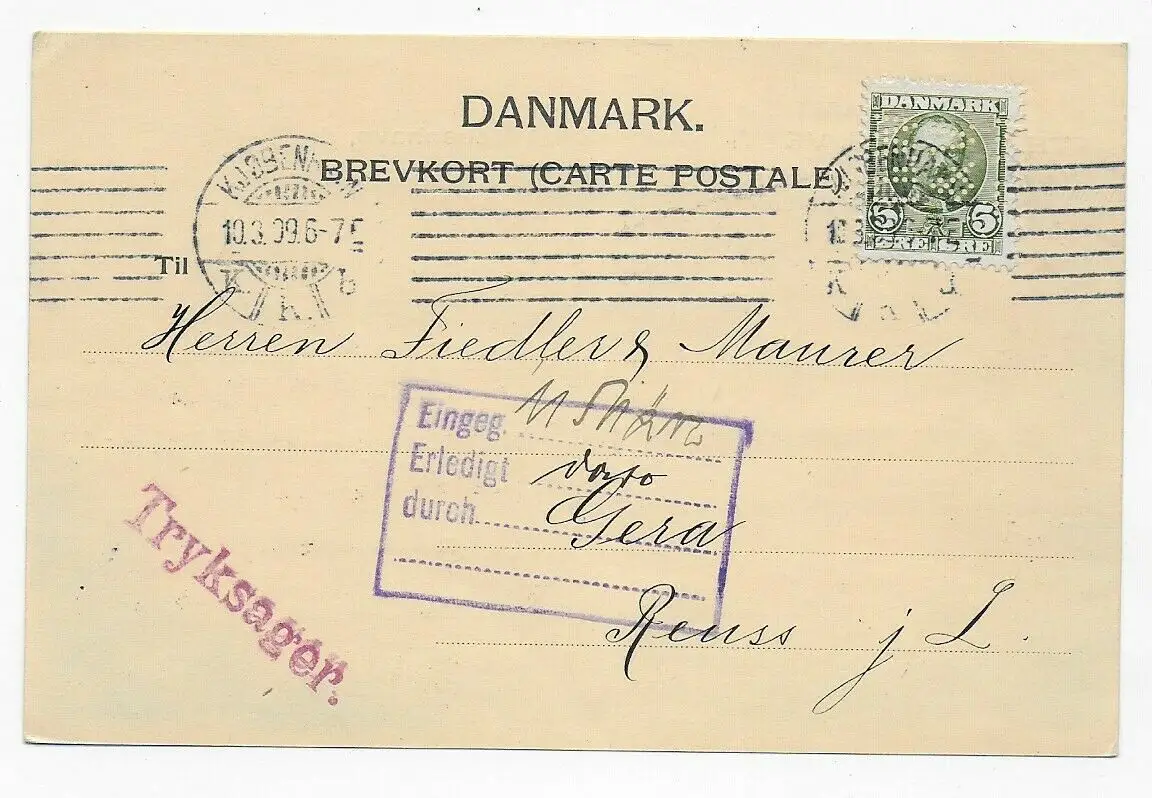 DANMARK.
BREVKORT (CARTE POSTALE)
DANMARK
5 5
ØRE ØRE
KJØBENHAVN
10.3.09.6-7E
K. K. b
Til
Herren Fiedler & Maurer
Eingeg.
Erledigt
durch
Gera
Reuss j L.
Tryksager.